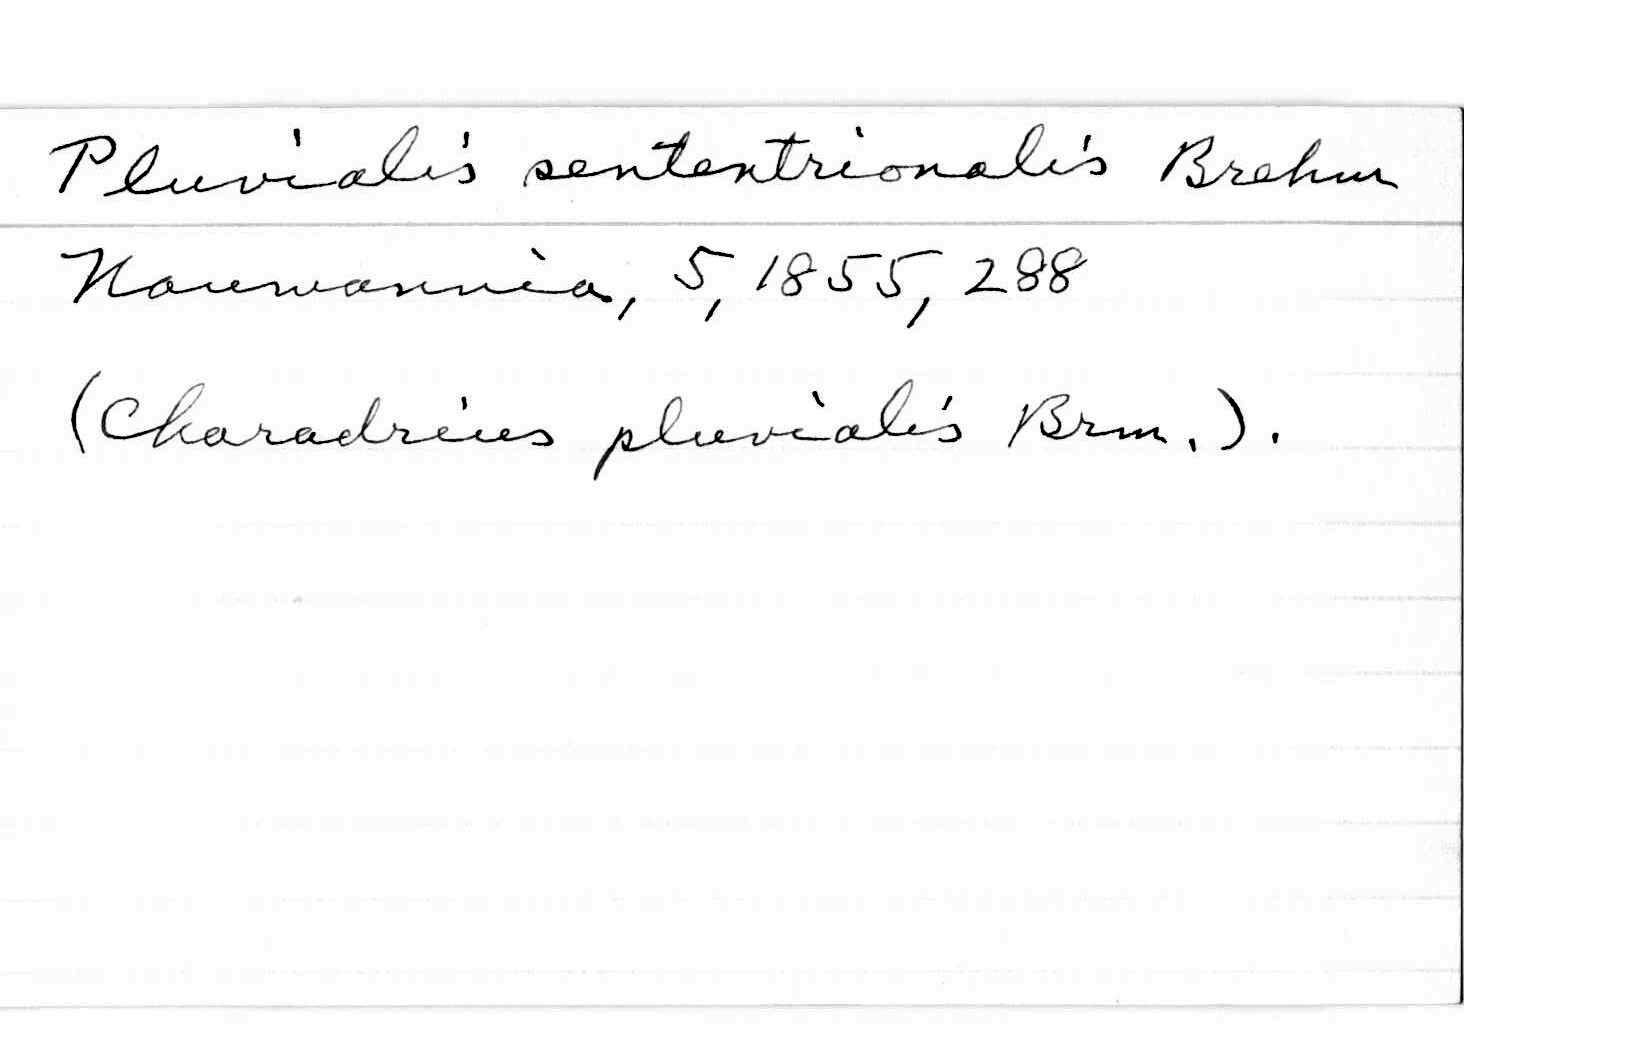 Pluvialis sententrionalis Brehm
Naumannia, 5, 1855, 288
(Charadrius pluvialis Brm.).